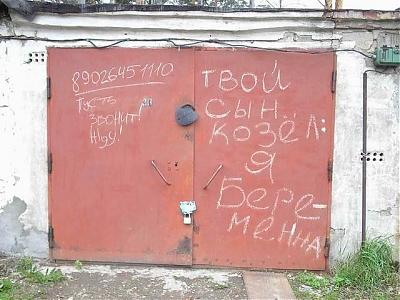 89026451110
Пусть
звонит!
Жду!
твой
сын
козёл:
я
Бере-
менна